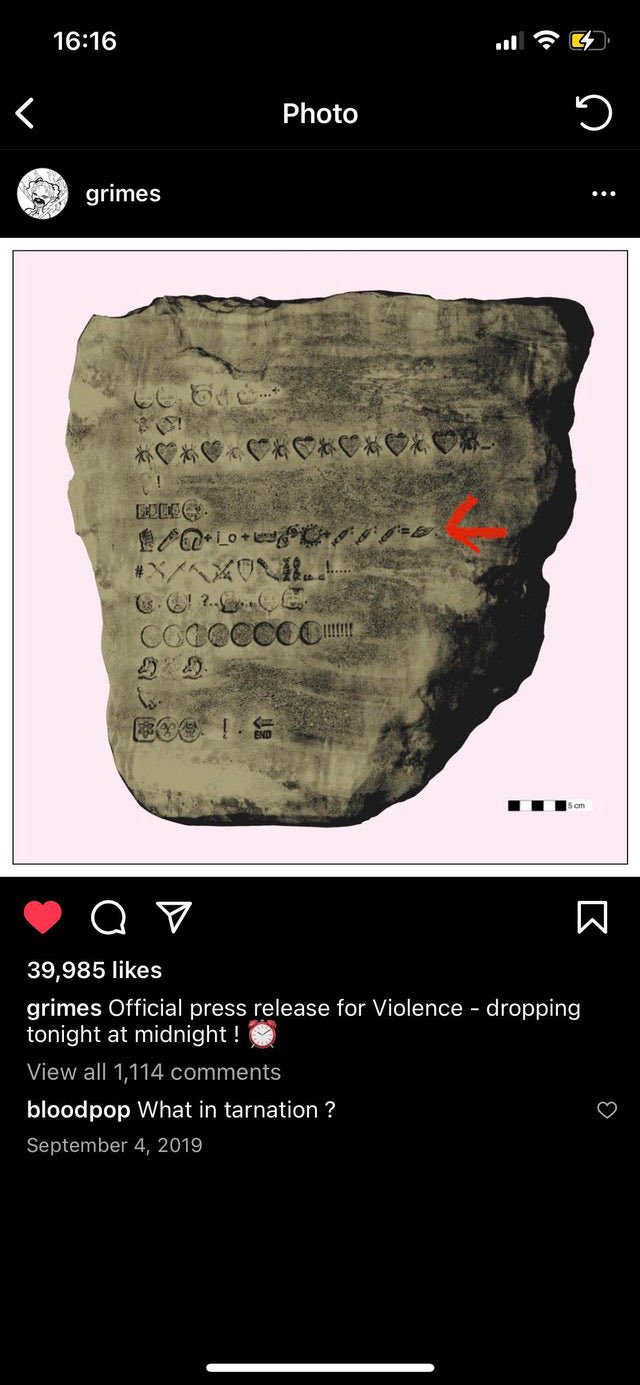 16:16
Photo
grimes
i_o
END
5 cm
39,985 likes
grimes Official press release for Violence - dropping
tonight at midnight ! ⏰
View all 1,114 comments
bloodpop What in tarnation ?
September 4, 2019